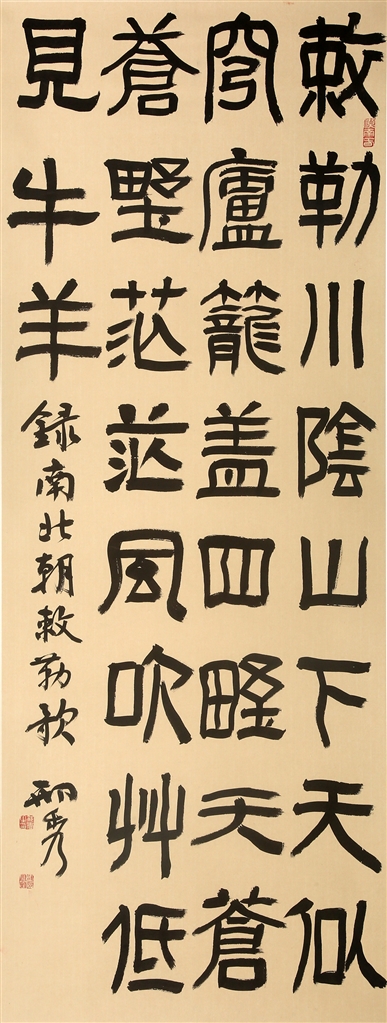 敕勒川陰山下天似
穹廬籠盖四墅天蒼
蒼墅茫茫風吹艸低
見牛羊 録南北朝敕勒歌